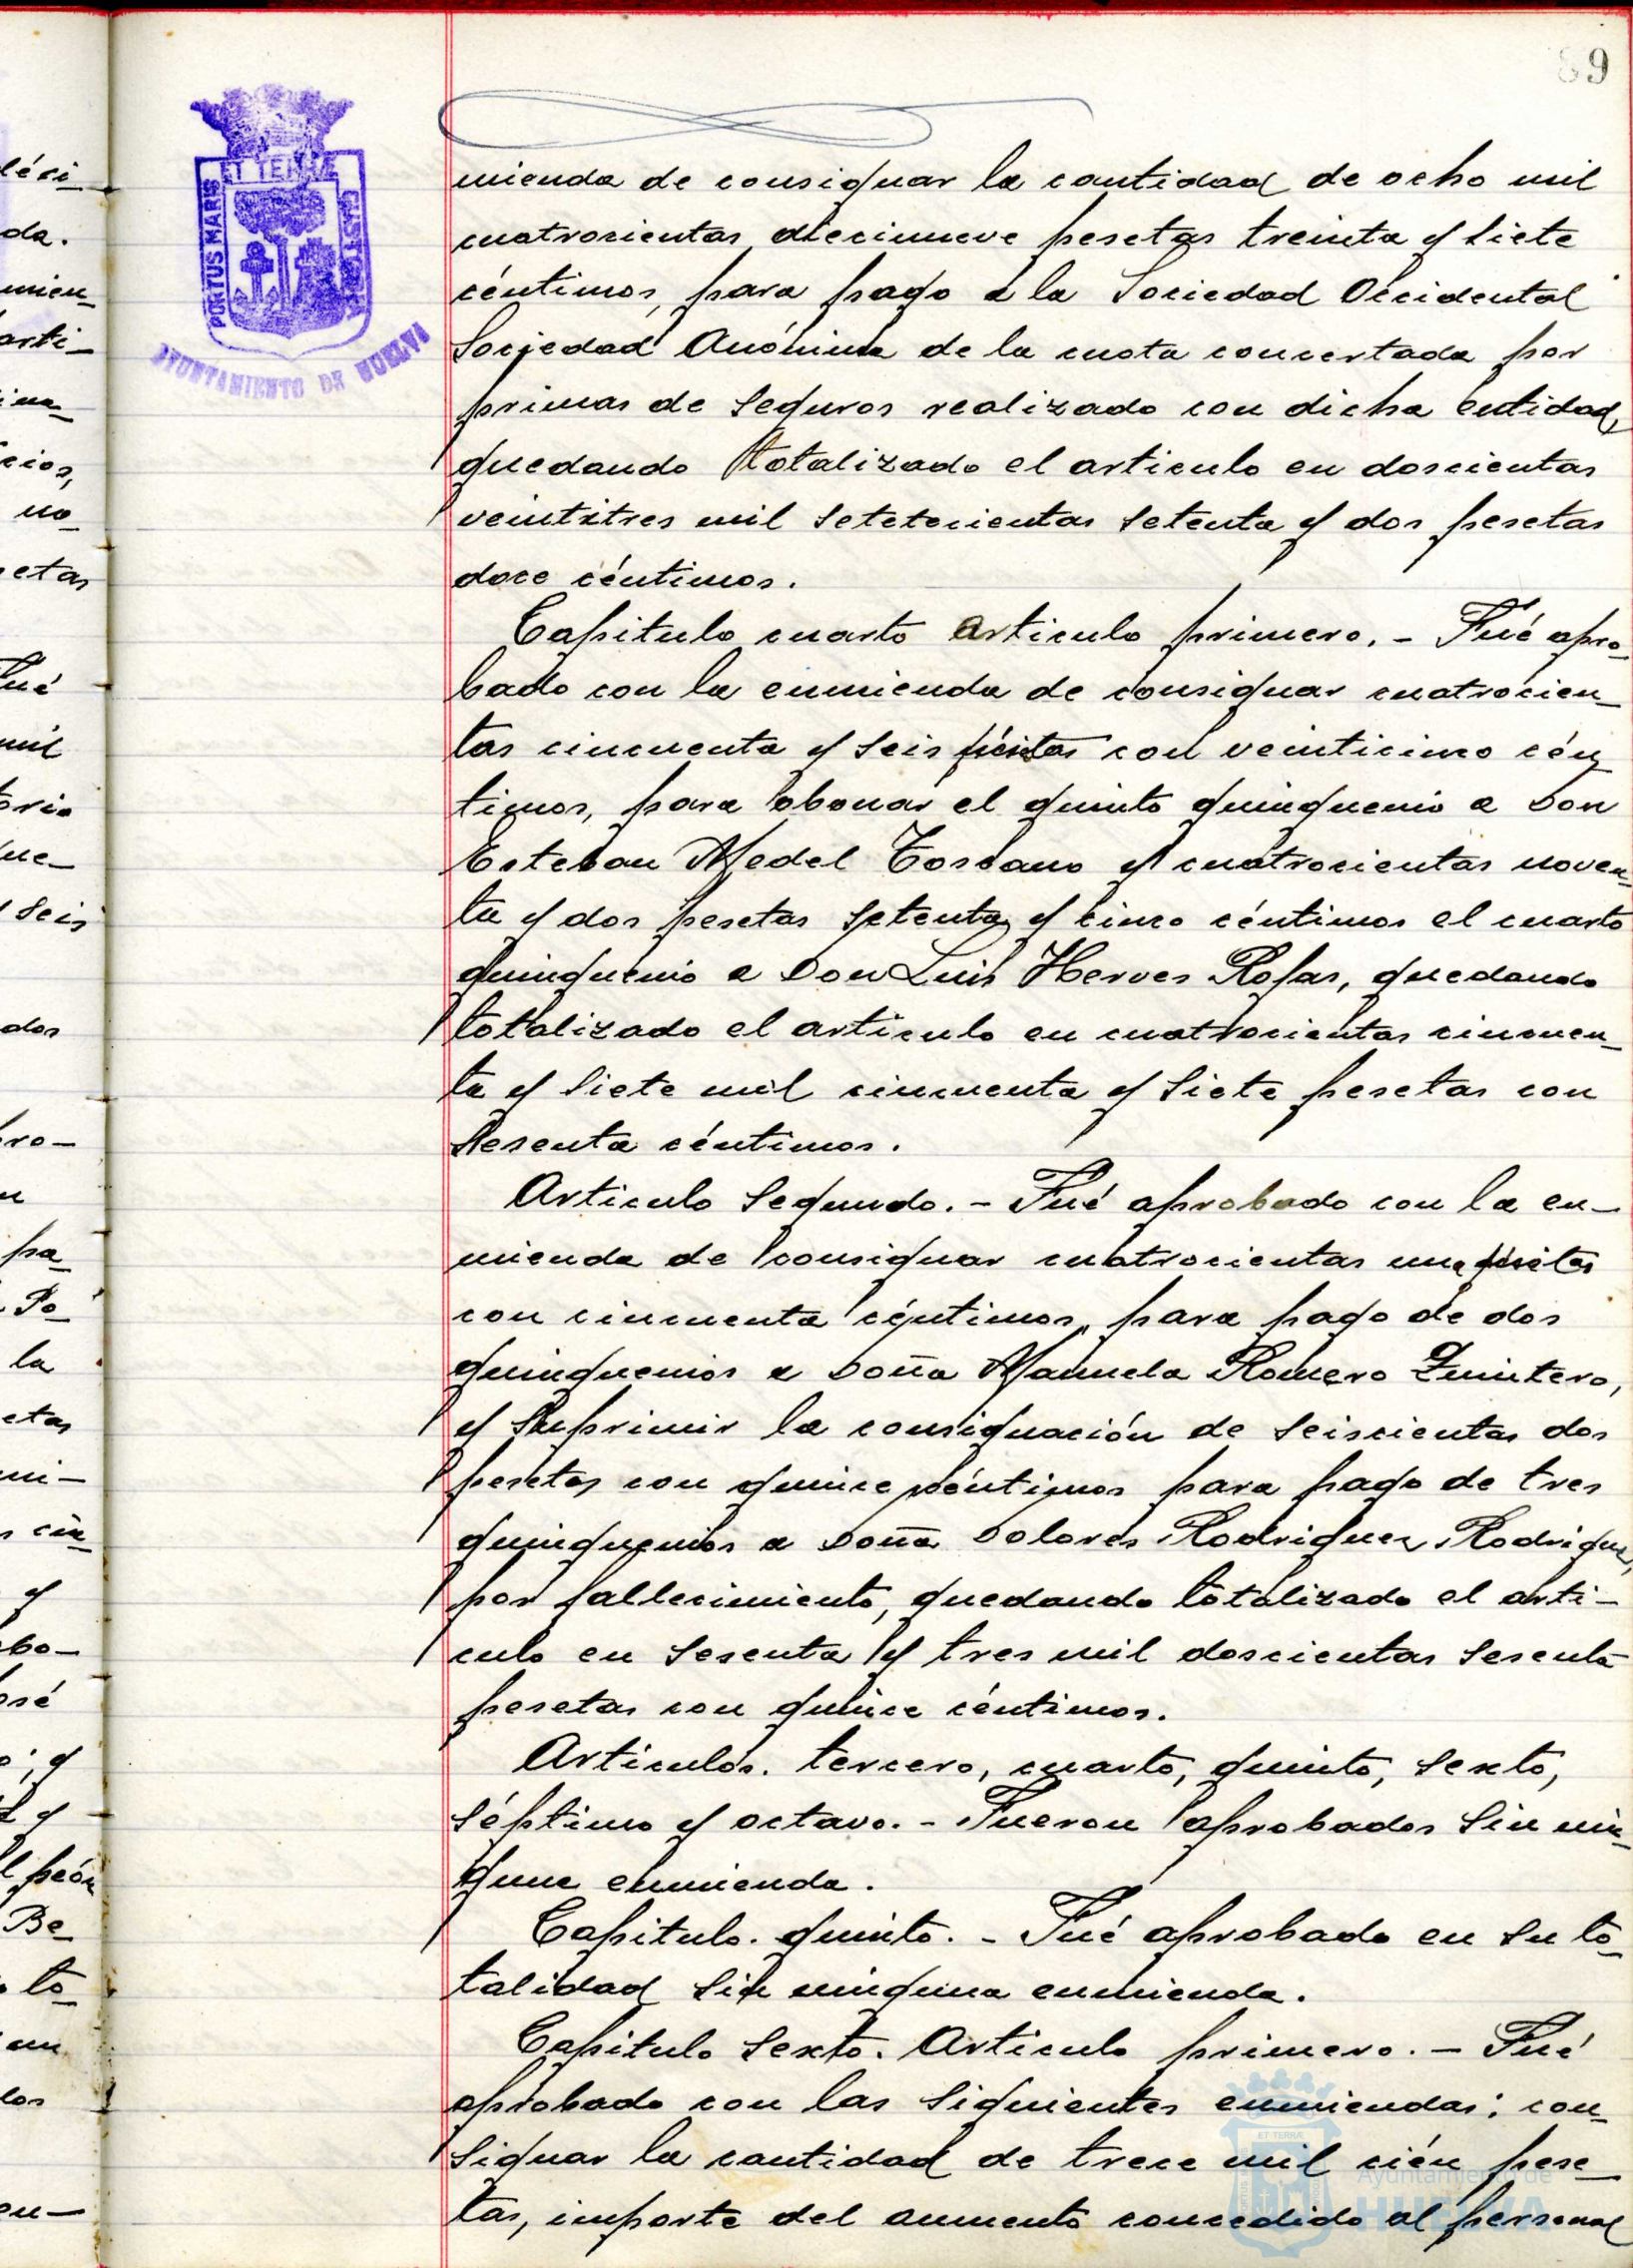 89
ET TERRÆ
PORTUS MARIS
CUSTODIA
AYUNTAMIENTO DE HUELVA
mienda de consignar la cantidad de ocho mil
cuatrocientas diecinueve pesetas treinta y siete
céntimos, para pago a la Sociedad Occidental
Sociedad Anónima de la cuota concertada por
primas de seguros realizado con dicha entidad,
quedando totalizado el articulo en doscientas
veintitres mil setetecientas setenta y dos pesetas
doce céntimos.
Capitulo cuarto Articulo primero. - Fué apro_
bado con la enmienda de consignar cuatrocien_
tas cincuenta y seis pesetas con veinticinco cén_
timos, para abonar el quinto quinquenio a Don
Esteban Medel Toscano y cuatrocientas noven_
ta y dos pesetas setenta y cinco céntimos el cuarto
quinquenio a Don Luis Herves Rojas, quedando
totalizado el articulo en cuatrocientas cincuen_
ta y siete mil cincuenta y siete pesetas con
sesenta céntimos.
Articulo segundo. - Fué aprobado con la en_
mienda de consignar cuatrocientas una pesetas
con cincuenta céntimos, para pago de dos
quinquenios a Doña Manuela Romero Quintero,
y suprimir la consignación de seiscientas dos
pesetas con quince céntimos para pago de tres
quinquenios a Doña Dolores Rodriguez Rodriguez,
por fallecimiento, quedando totalizado el arti-
culo en sesenta y tres mil doscientas sesenta
pesetas con quince céntimos.
Articulos. tercero, cuarto, quinto, sexto,
séptimo y octavo. - Fueron aprobados sin nin_
guna enmienda.
Capitulo. quinto. - Fué aprobado en su to_
talidad sin ninguna enmienda.
Capitulo sexto. Articulo primero. - Fué
aprobado con las siguientes enmiendas: con_
signar la cantidad de trece mil cién pese_
tas, importe del aumento concedido al personal
Ayuntamiento de
HUELVA